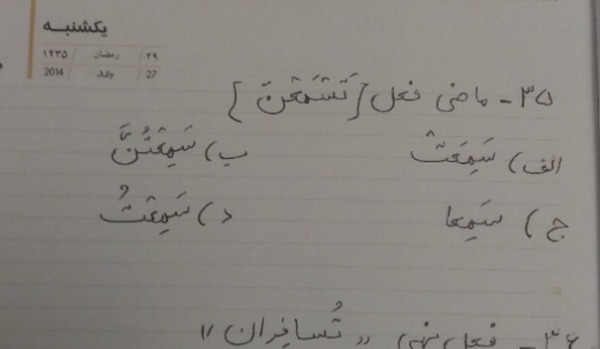 یکشنبه
۲۹ / رمضان / ۱۴۳۵
2014 / July / 27
۳۵- ماضی فعل [تَسْمَعْنَ]
الف) سَمِعَتْ ب) سَمِعْتُنَّ
ج) سَمِعا د) سَمِعْتُ
۳۶- فعل نهی "تُسافِران"